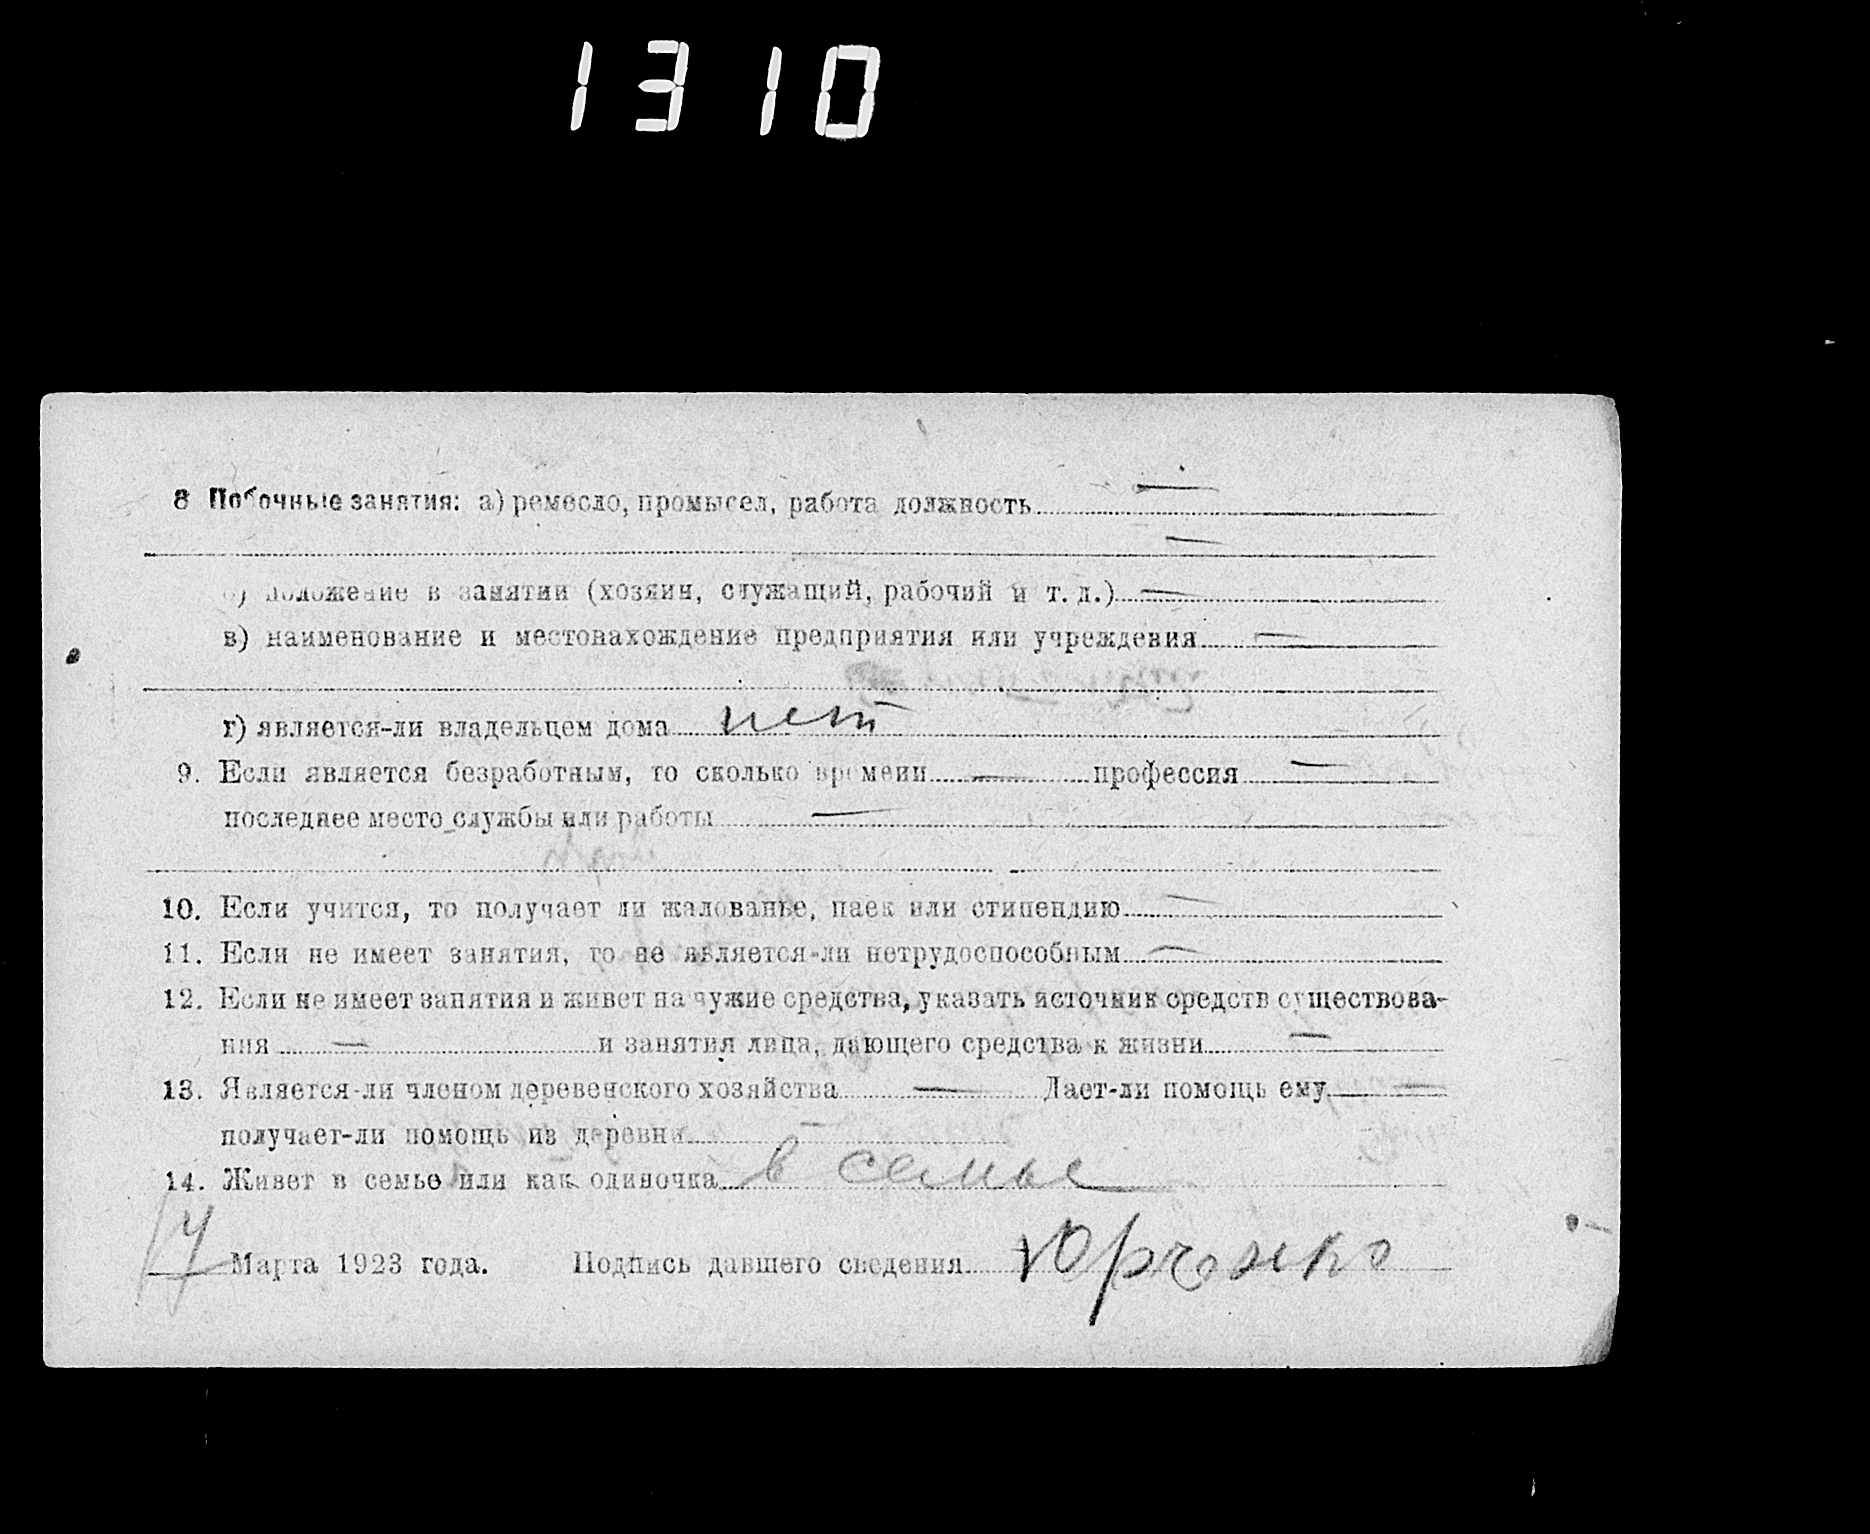 1310
8 Побочные занятия: а) ремесло, промысел, работа должность —
—
б) положение в занятии (хозяин, служащий, рабочий и т. д.) —
в) наименование и местонахождение предприятия или учреждения —
г) является-ли владельцем дома нет
9. Если является безработным, то сколько времени — профессия —
последнее место службы или работы —
10. Если учится, то получает ли жалованье, паек или стипендию —
11. Если не имеет занятия, то не является-ли нетрудоспособным —
12. Если не имеет занятия и живет на чужие средства, указать источник средств существова-
ния — и занятия лица, дающего средства к жизни —
13. Является-ли членом деревенского хозяйства — Дает-ли помощь ему —
получает-ли помощь из деревни —
14. Живет в семье или как одиночка в семье
14 Марта 1923 года. Подпись давшего сведения Юрченко